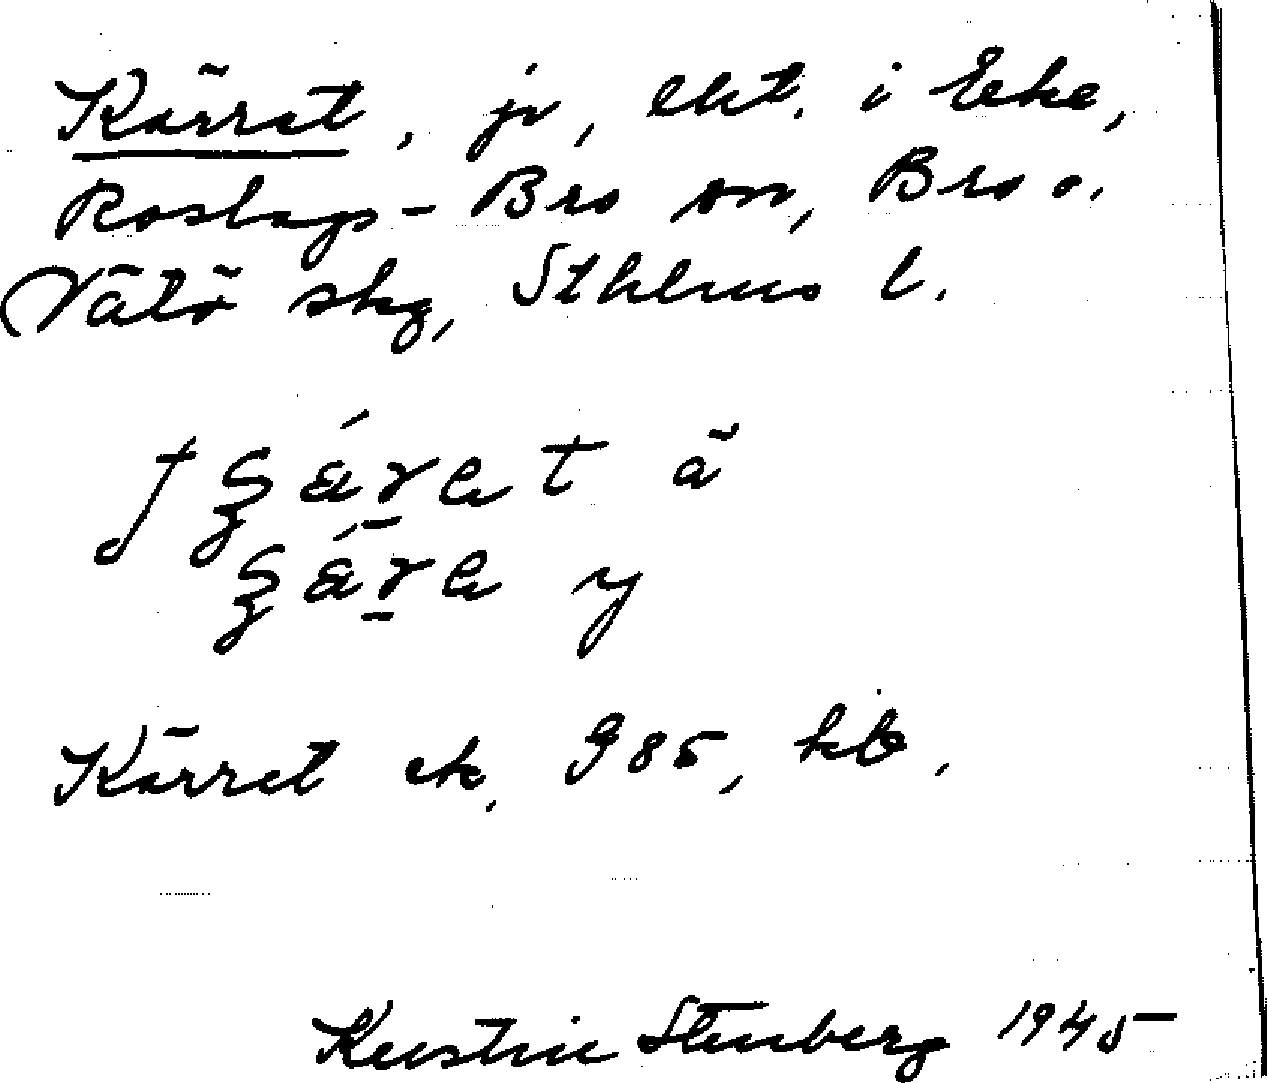 Kärret, jv, lht. i Eke,
Roslags-Bro sn, Bro o.
Vätö skg, Sthlms l.
ä
y
Kärret ek. J 85, kb.
Kerstin Stenberg 1945